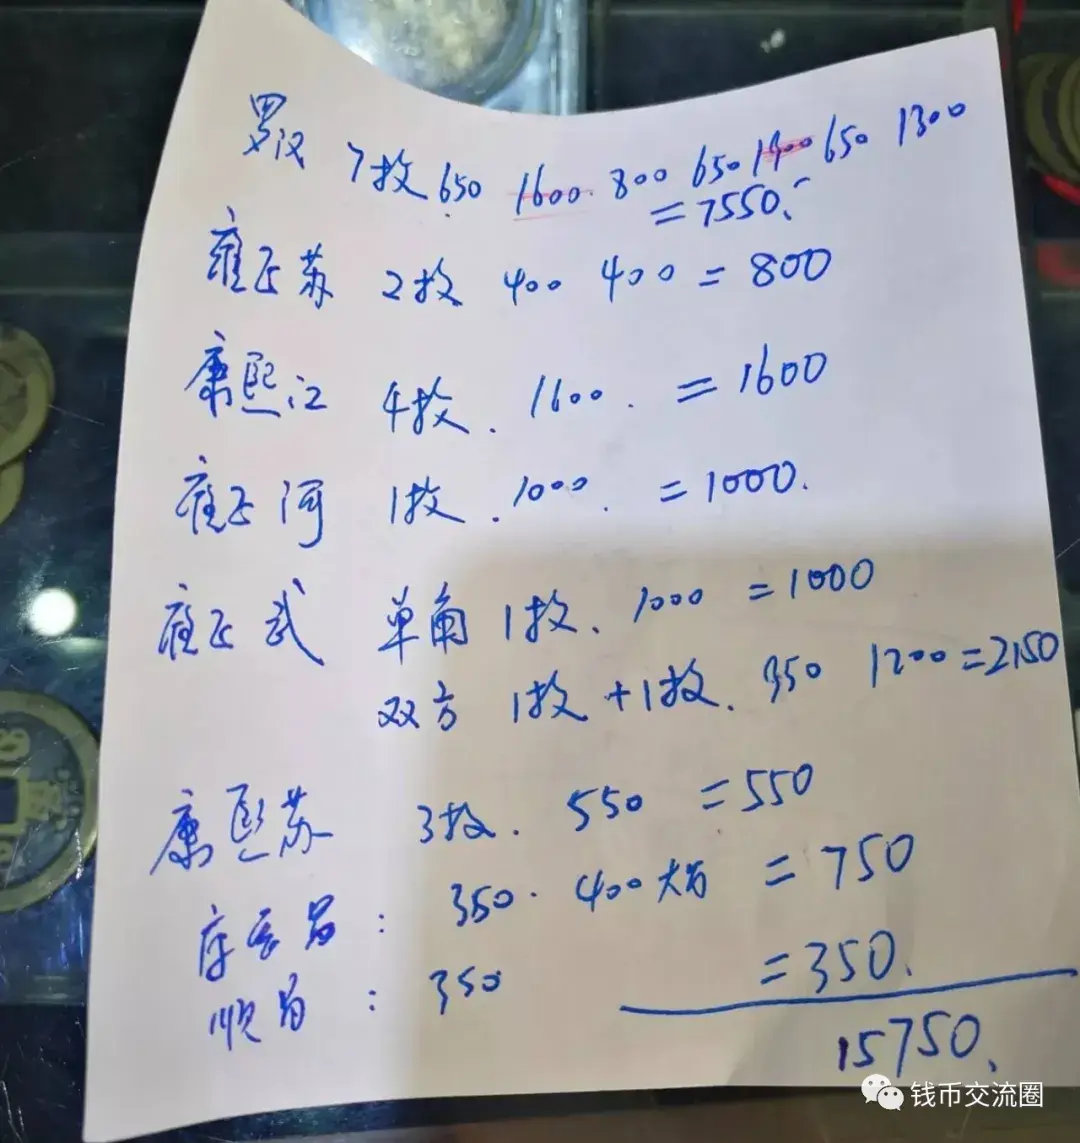 罗汉 7枚 650 1600. 800 650 1900 650 1300
=7550.
雍正苏 2枚 400 400 = 800
康熙江 4枚. 1600. = 1600
雍正河 1枚. 1000. = 1000.
雍正武 单角 1枚. 1000 = 1000
双方 1枚+1枚. 950 1200 = 2150
康熙苏 3枚. 550 = 550
: 350. 400 = 750
顺昌: 350 = 350.
15750.
钱币交流圈